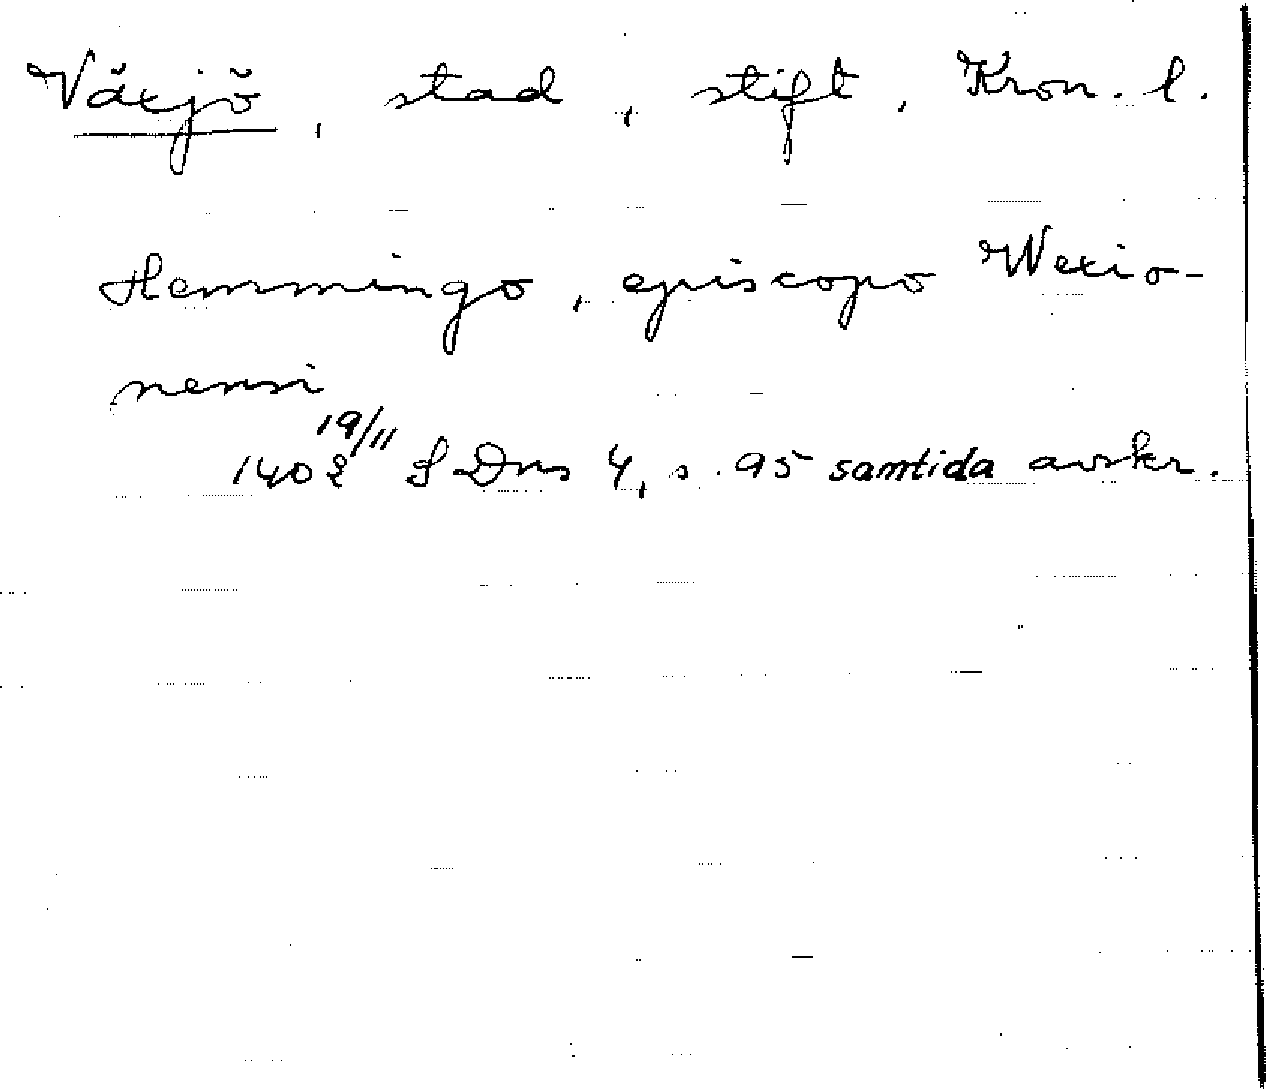 Växjö, stad, stift, Kron. l.
Hemmingo, episcopo Wexio-
nensi
1402 19/11 SDns 4, s. 95 samtida avskr.